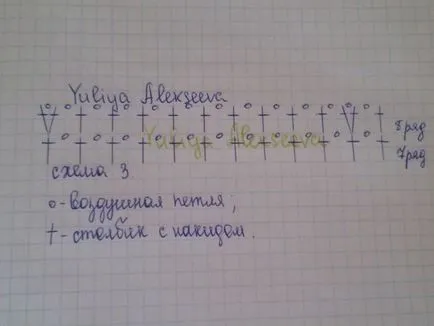 Yuliya Alekseeva
8 ряд
Yuliya Alekseeva
7 ряд
схема 3
о - воздушная петля;
† - столбик с накидом.